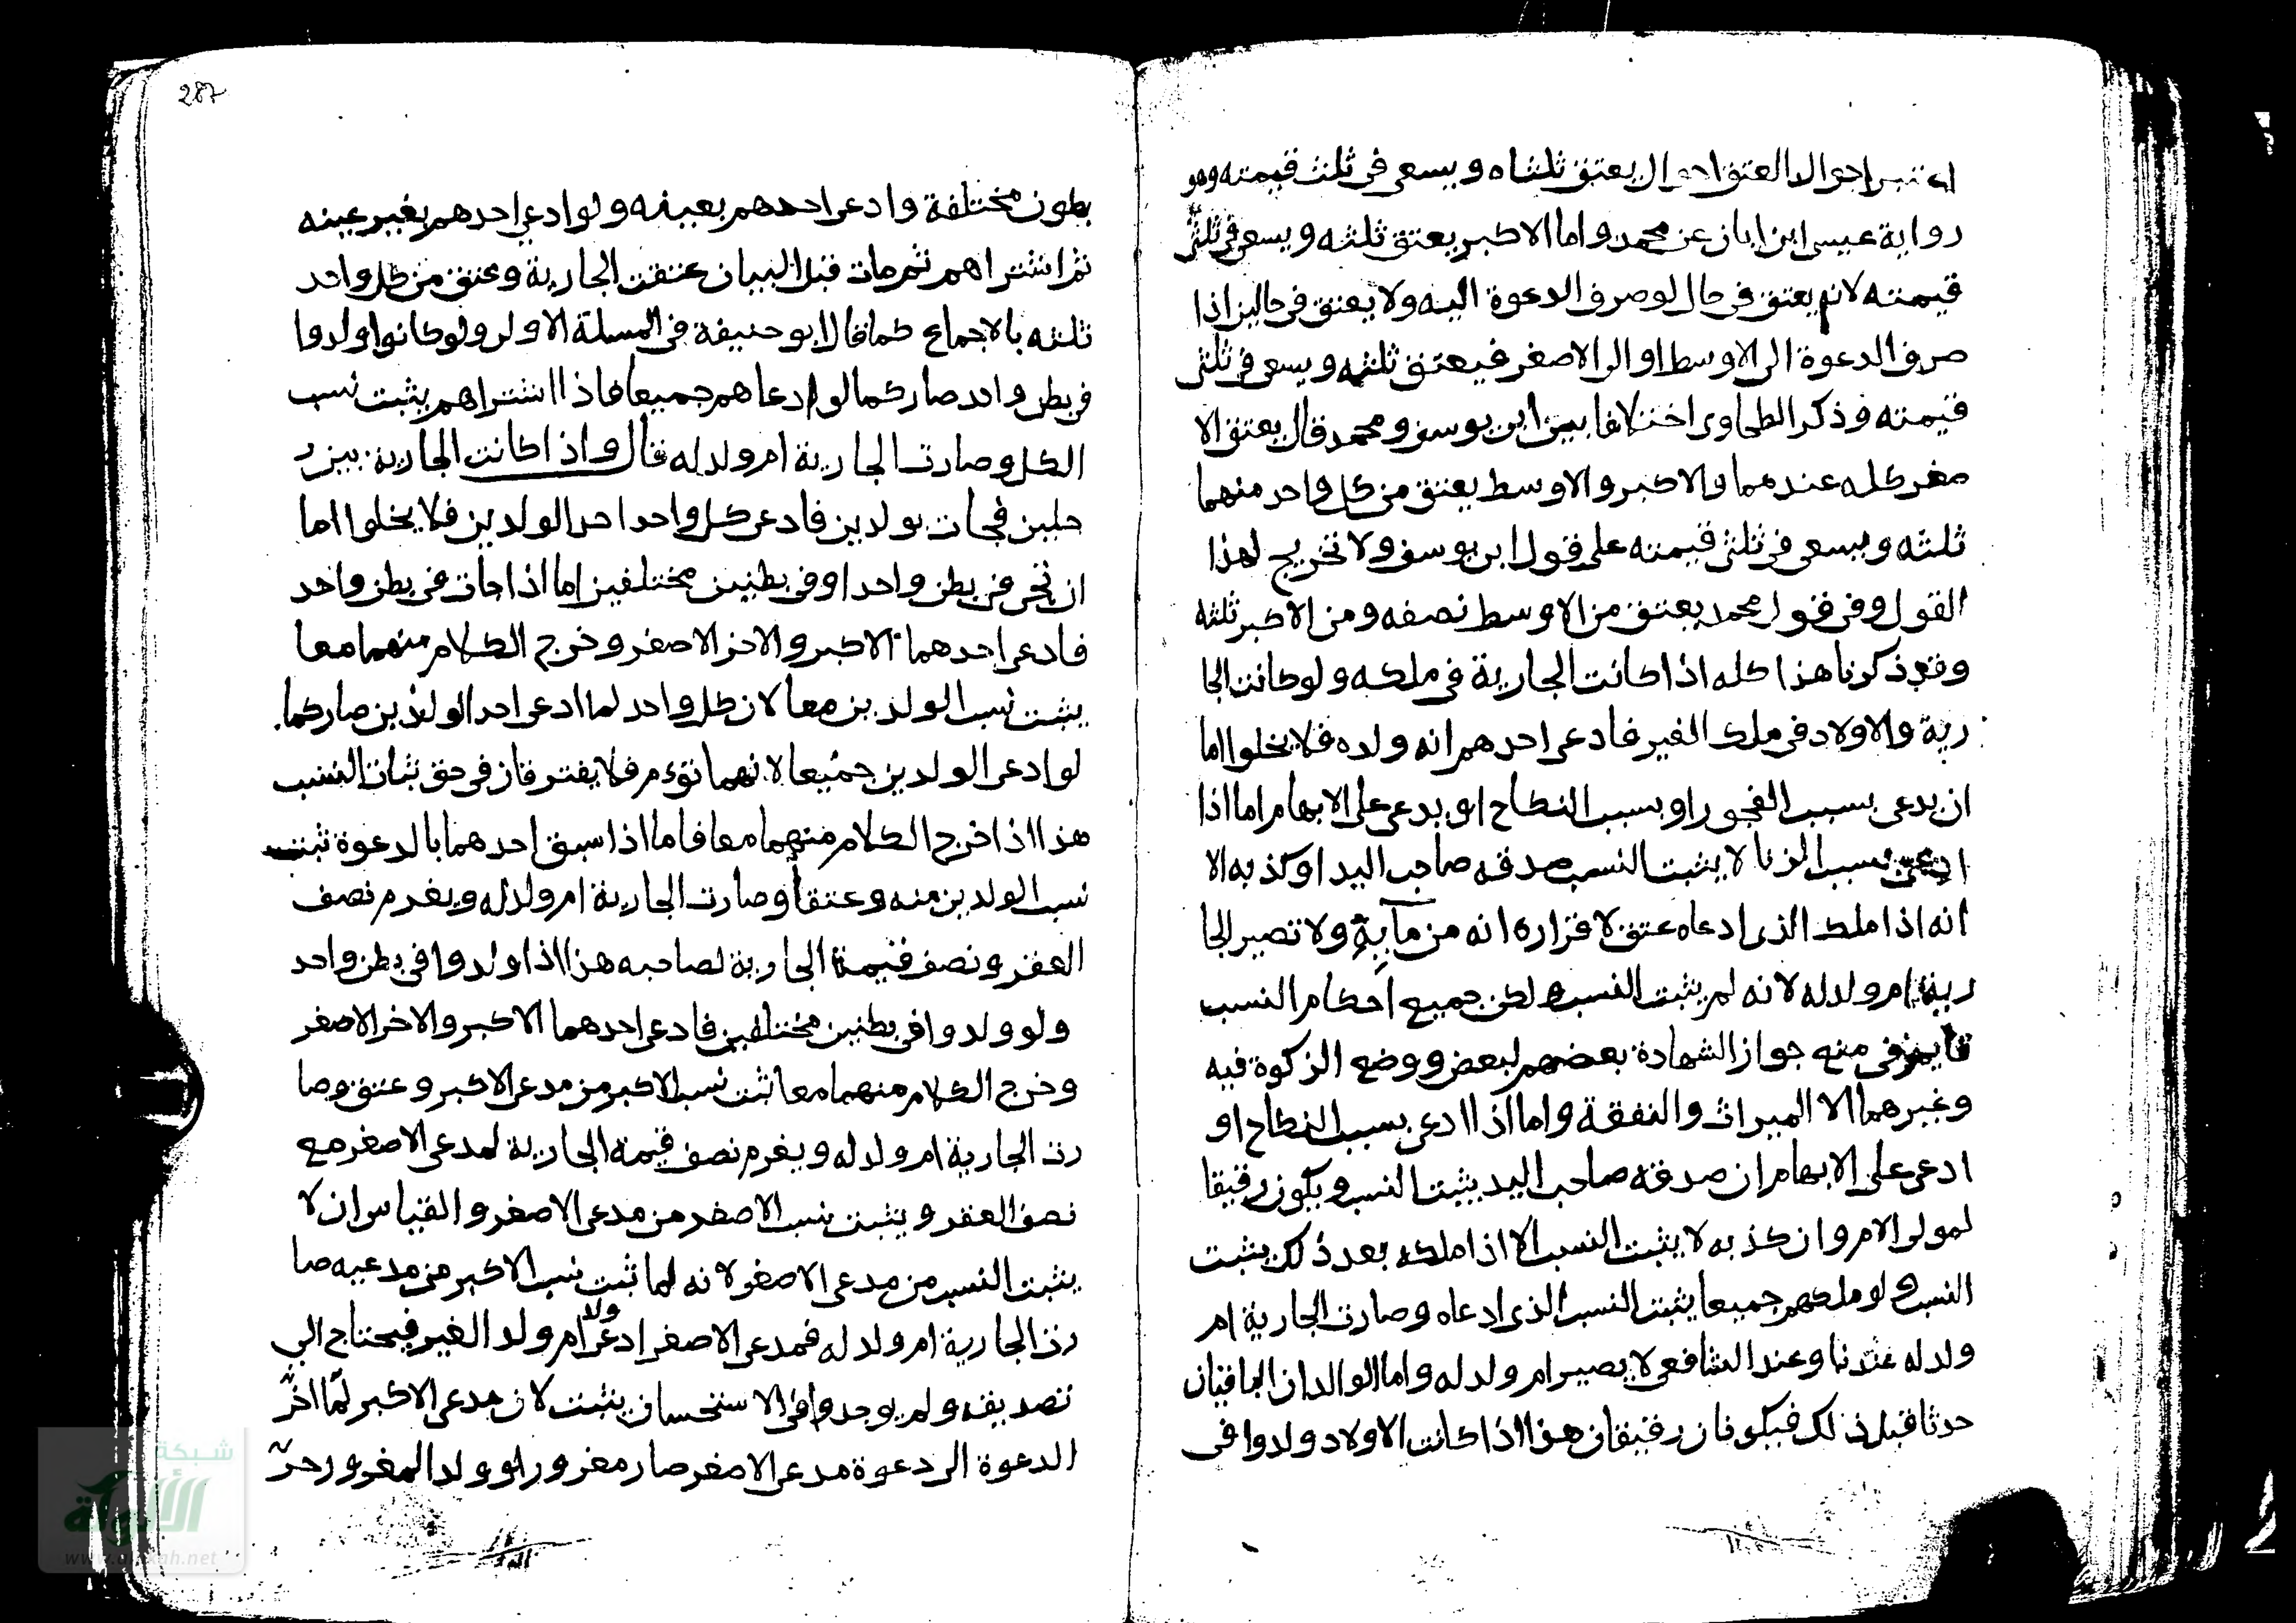 اعتبر احوال العتق احوال يعتق ثلثاه ويسعى فى ثلث قيمته وهو
رواية عيسى ابن ابان عن محمد واما الاكبر يعتق ثلثه ويسعى فى ثلثى
قيمته لانه يعتق فى حال لو صرف الدعوة اليه ولا يعتق فى حالين اذا
صرف الدعوة الى الاوسط او الى الاصغر فيعتق ثلثه ويسعى فى ثلثى
قيمته وذكر الطحاوى اختلافا بين ابى يوسف ومحمد قال يعتق الا
صغر كله عندهما والاكبر والاوسط يعتق من كل واحد منهما
ثلثه ويسعى فى ثلثى قيمته على قول ابى يوسف ولا تخريج لهذا
القول وفى قول محمد يعتق من الاوسط نصفه ومن الاكبر ثلثه
وقد ذكرنا هذا كله اذا كانت الجارية فى ملكه ولو كانت الجا
رية والاولاد فى ملك الغير فادعى احدهم انه ولده فلا يخلوا اما
ان يدعى بسبب الفجور او بسبب النكاح او يدعى على الابهام اما اذا
ادعى بسبب الزنا لا يثبت النسب صدقه صاحب اليد او كذبه الا
انه اذا ملك الذى ادعاه عتق لاقراره انه من مايه ولا تصير الجا
رية ام ولد له لانه لم يثبت النسب لكن جميع احكام النسب
منه جواز الشهادة بعضهم لبعض ووضع الزكوة فيه
وغيرهما الا الميراث والنفقة واما اذا ادعى بسبب النكاح او
ادعى على الابهام ان صدقه صاحب اليد يثبت النسب ويكون رقيقا
لمولى الام وان كذبه لا يثبت النسب الا اذا ملكه بعد ذلك يثبت
النسب ولو ملكهم جميعا يثبت النسب الذى ادعاه وصارت الجارية ام
ولد له عندنا وعند الشافعى لا يصير ام ولد له واما الوالدان الباقيان
حدثا قبل ذلك فيكونان رقيقان هذا اذا كانت الاولاد ولدوا فى
287
بطون مختلفة وادعى احدهم بعينه ولو ادعى احدهم بغير عينه
ثم اشتراهم ثم مات قبل البيان عتقت الجارية وعتق من كل واحد
ثلثه بالاجماع كما قال ابو حنيفة فى المسلة الاولى ولو كانوا ولدوا
فى بطن واحد صار كما لو ادعاهم جميعا فاذا اشتراهم يثبت نسب
الكل وصارت الجارية ام ولد له قال واذا كانت الجارية بين ر
جلين فجات بولدين فادعى كل واحد احد الولدين فلا يخلوا اما
ان تجى فى بطن واحد او فى بطنين مختلفين اما اذا جات فى بطن واحد
فادعى احدهما الاكبر والاخر الاصغر وخرج الكلام منهما معا
يثبت نسب الولدين معا لان كل واحد لما ادعى احد الولدين صار كما
لو ادعى الولدين جميعا لانهما توءم فلا يفترقان فى حق ثبات النسب
هذا اذا خرج الكلام منهما معا فاما اذا سبق احدهما بالدعوة ثبت
نسب الولدين منه وعتقا وصارت الجارية ام ولد له ويغرم نصف
العقر ونصف قيمة الجارية لصاحبه هذا اذا ولدوا فى بطن واحد
ولو ولدوا فى بطنين مختلفين فادعى احدهما الاكبر والاخر الاصغر
وخرج الكلام منهما معا ثبت نسب الاكبر من مدعى الاكبر وعتق وصا
رت الجارية ام ولد له ويغرم نصف قيمة الجارية لمدعى الاصغر مع
نصف العقر ويثبت نسب الاصغر من مدعى الاصغر والقياس ان لا
يثبت النسب من مدعى الاصغر لانه لما ثبت نسب الاكبر من مدعيه صا
رت الجارية ام ولد له فمدعى الاصغر ادعى ولد ام ولد الغير فيحتاج الى
تصديقه ولم يوجد وفى الاستحسان يثبت لان مدعى الاكبر لما اخر
الدعوة الى دعوة مدعى الاصغر صار مغرورا وولد المغرور حر
شبكة
الألوكة
www.alukah.net